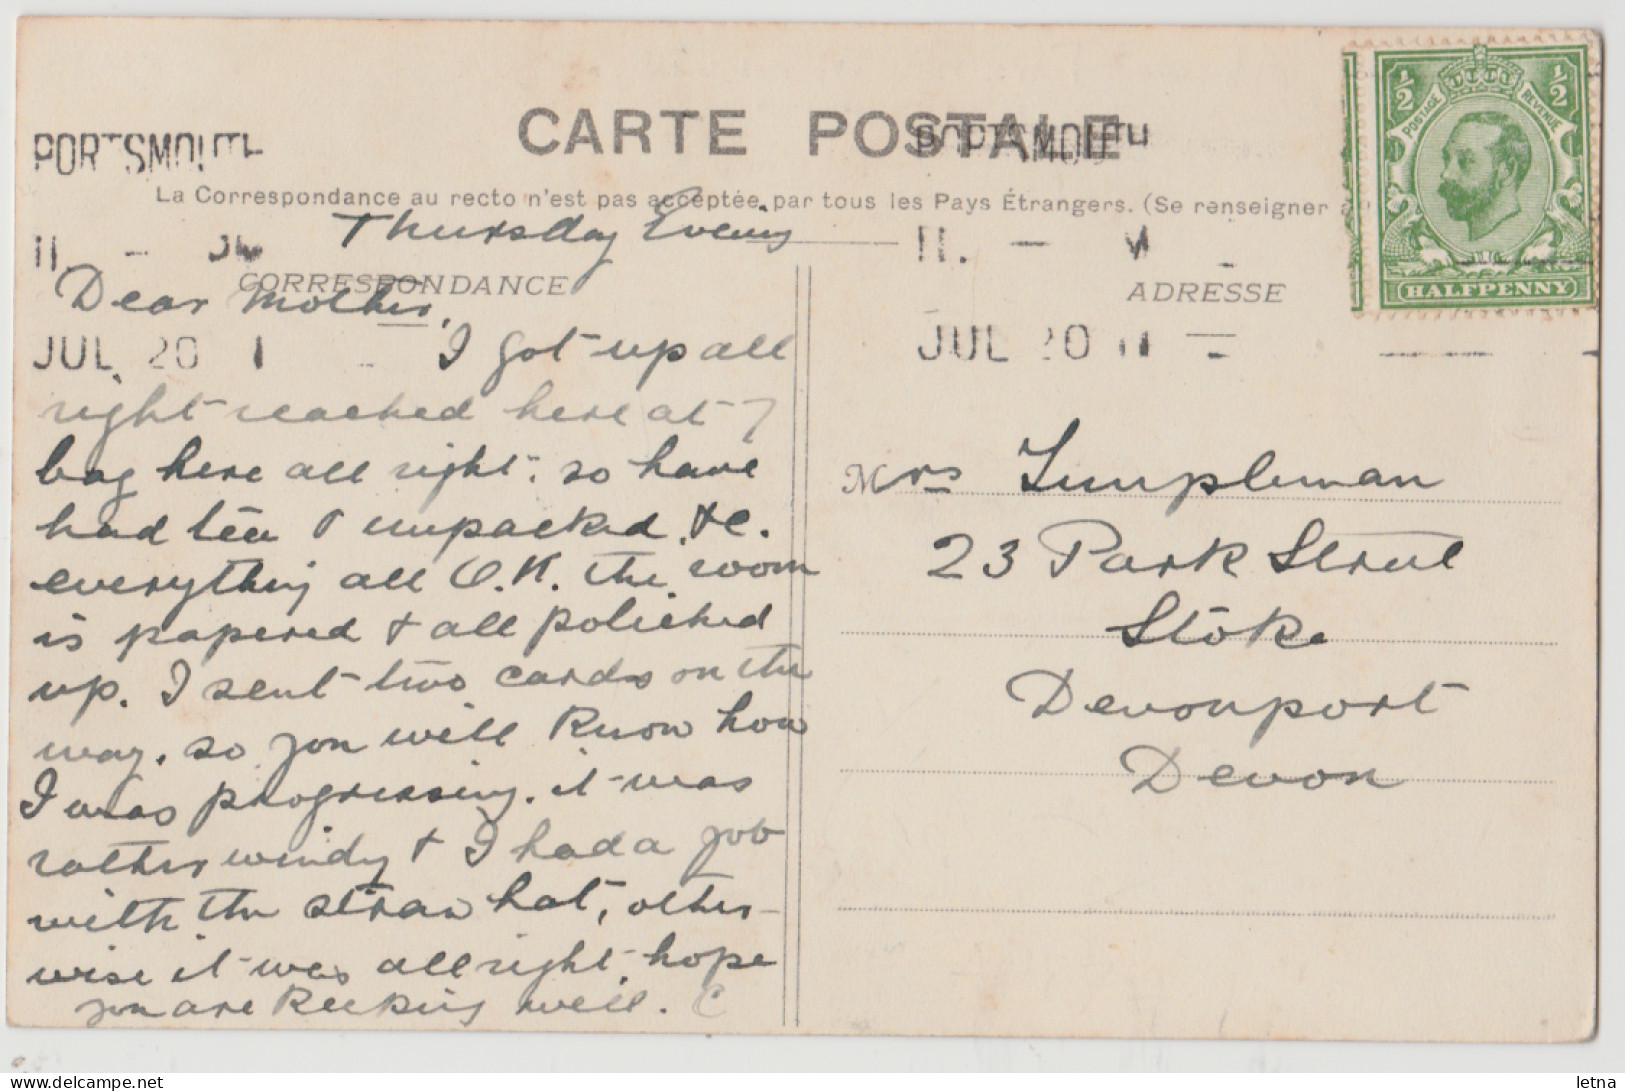 CARTE POSTALE
PORTSMOUTH
PORTSMOUTH
La Correspondance au recto n'est pas acceptée par tous les Pays Étrangers. (Se renseigner à
½ ½
POSTAGE REVENUE
HALFPENNY
JUL 20 11
JUL 20 11
CORRESPONDANCE
Thursday Evening
Dear Mother,
I got up all
right reached here at 7
bag here all right. so have
had tea & unpacked. &c.
everything all O.K. the room
is papered & all polished
up. I sent two cards on the
way. so you will know how
I was progressing. it was
rather windy & I had a job
with the straw hat, other-
wise it was all right. hope
you are keeping well. C
ADRESSE
Mrs Templeman
23 Park Street
Stoke
Devonport
Devon
letna